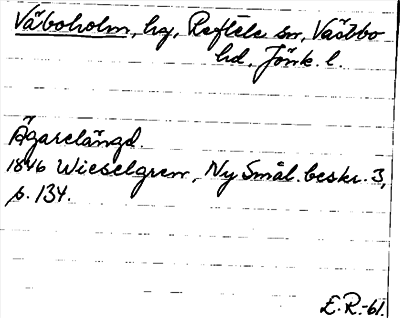 Väboholm, hg, Reftele sn, Västbo
hd, Jönk. l.
Ägarelängd.
1846 Wieselgren, Ny Smål. beskr. 3,
s. 134.
E.R.-61.